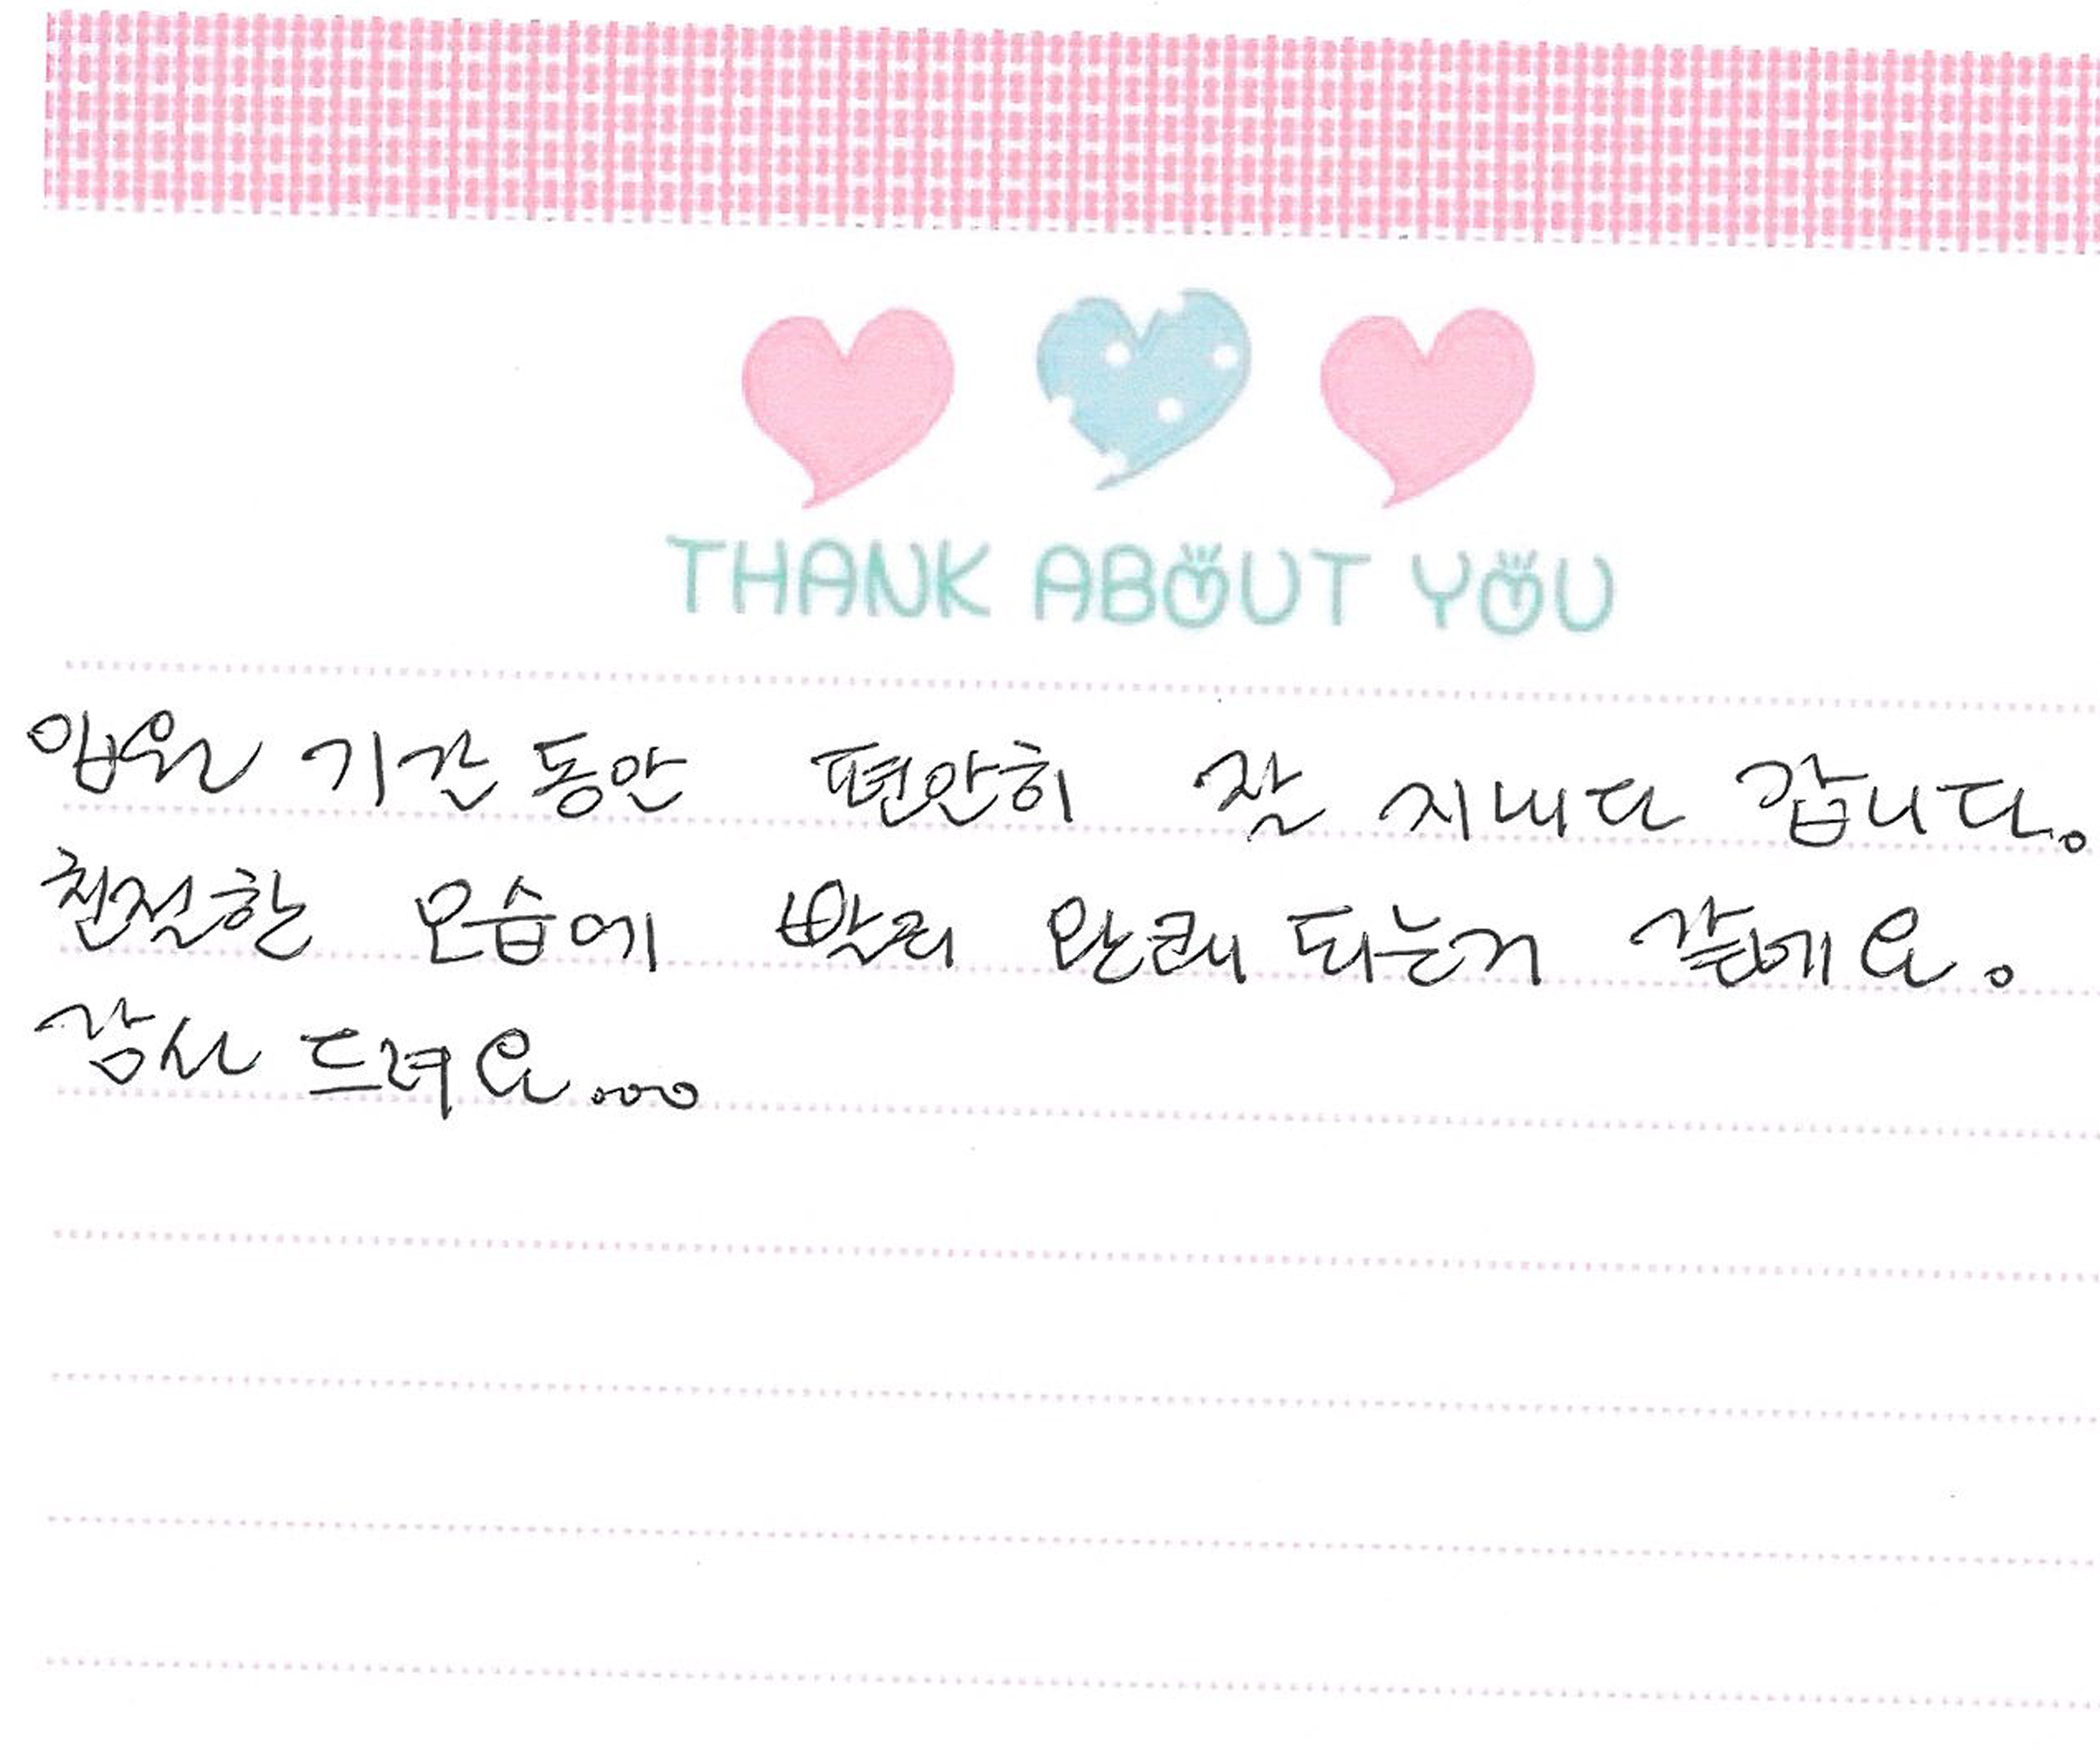 THANK ABOUT YOU
입원 기간 동안 편안히 잘 지내다 갑니다.
친절한 모습에 빨리 완쾌 되는거 같네요.
감사 드려요....